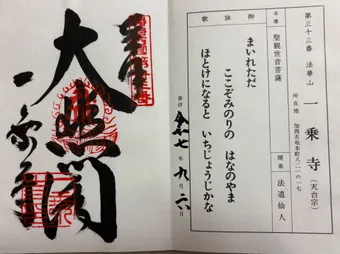 第三十三番 法華山
一乗寺（天台宗）
所在地 加西市坂本町八二一の一七
本尊 聖観世音菩薩
開基 法道仙人
御詠歌
まいれただ
ここぞみのりの はなのやま
ほとけになると いちじょうじかな
参拝 令七年九月六日
奉拝
大悲閣
一乗寺